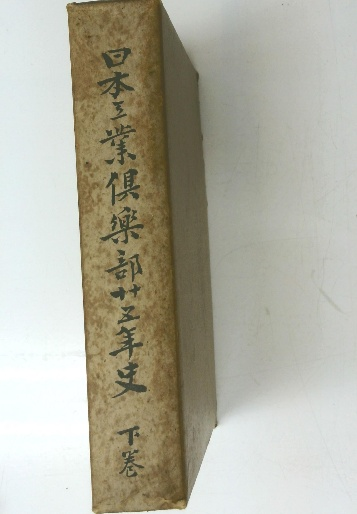 日本工業倶楽部廿五年史 下巻